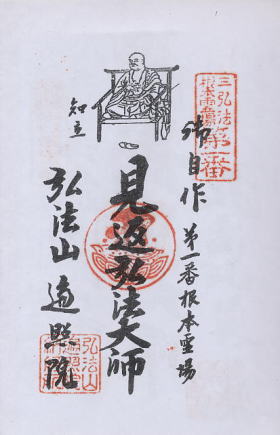 三弘法
根本霊場
第一番
御自作
第一番根本霊場
見返弘法大師
知立
弘法山 遍照院
弘法山
遍照院